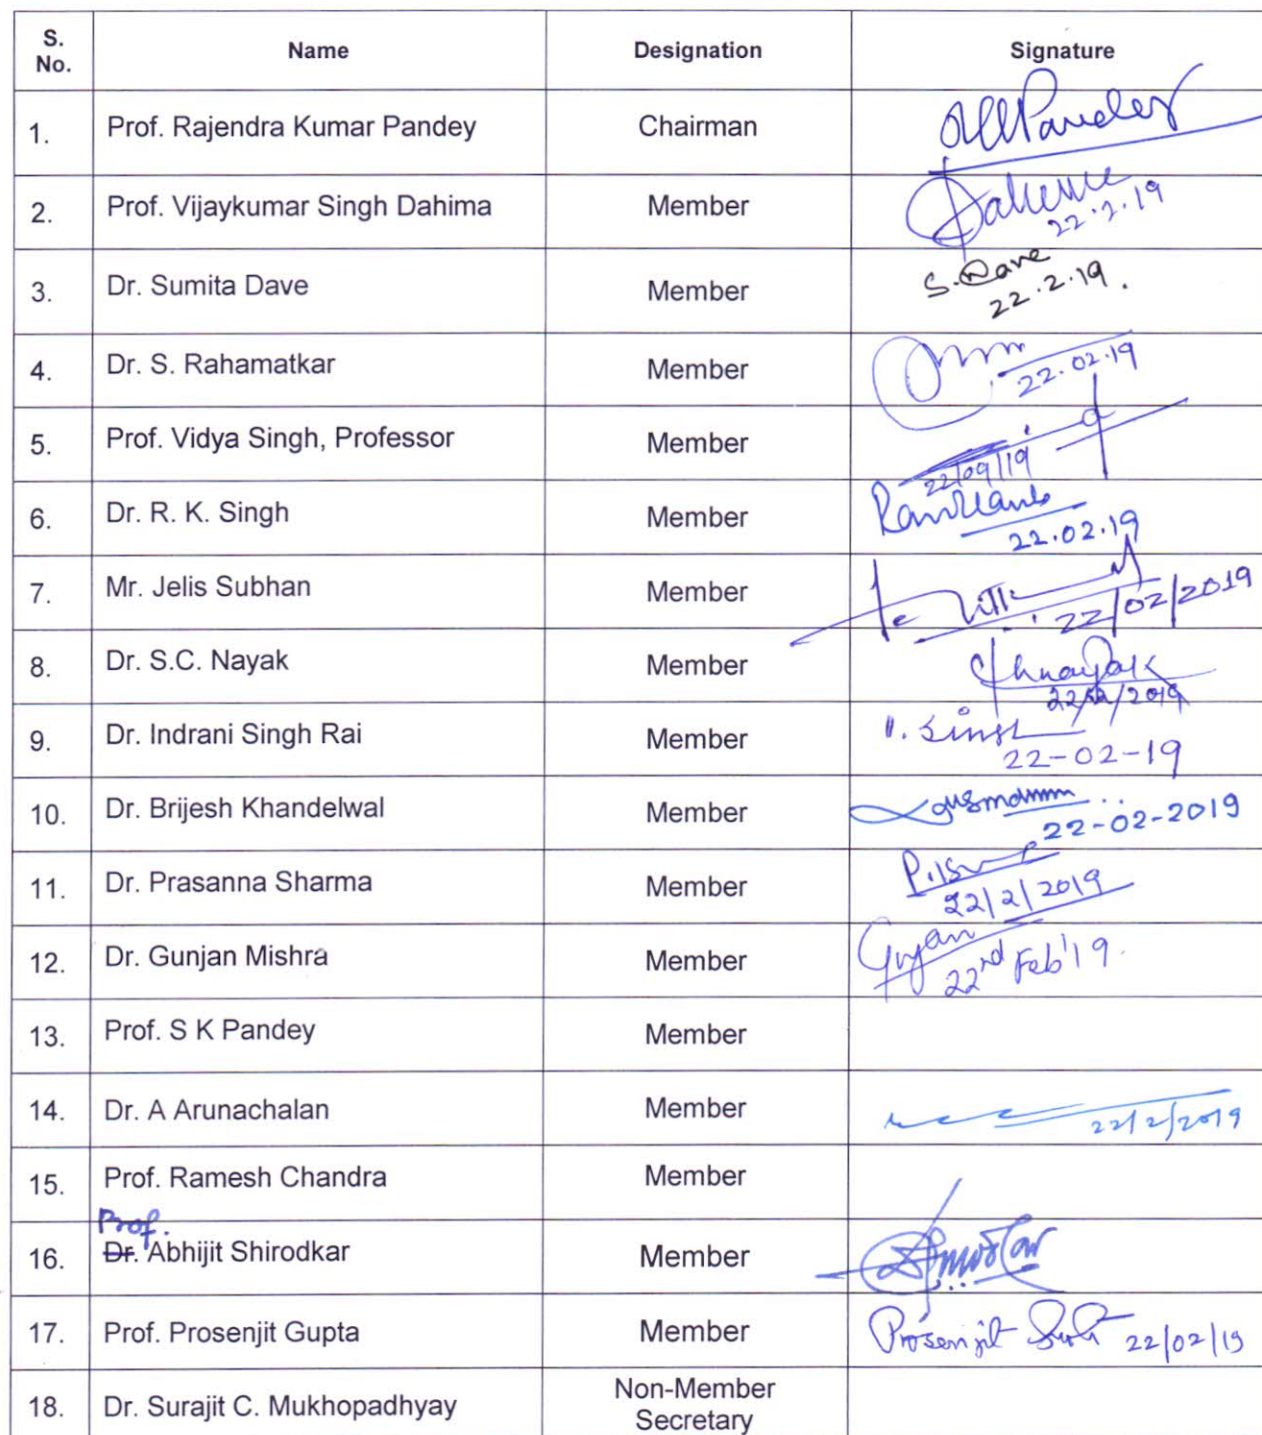 S. No. Name Designation Signature
1. Prof. Rajendra Kumar Pandey Chairman
2. Prof. Vijaykumar Singh Dahima Member 22.2.19
3. Dr. Sumita Dave Member S. Dave 22.2.19.
4. Dr. S. Rahamatkar Member 22.02.19
5. Prof. Vidya Singh, Professor Member 22/09/19
6. Dr. R. K. Singh Member 22.02.19
7. Mr. Jelis Subhan Member 22/02/2019
8. Dr. S.C. Nayak Member
9. Dr. Indrani Singh Rai Member I. Singh 22-02-19
10. Dr. Brijesh Khandelwal Member 22-02-2019
11. Dr. Prasanna Sharma Member 22/2/2019
12. Dr. Gunjan Mishra Member 22nd Feb'19.
13. Prof. S K Pandey Member
14. Dr. A Arunachalan Member 22/2/2019
15. Prof. Ramesh Chandra Member
Prof.
16. Dr. Abhijit Shirodkar Member
17. Prof. Prosenjit Gupta Member Prosenjit Gupta 22/02/19
18. Dr. Surajit C. Mukhopadhyay Non-Member Secretary